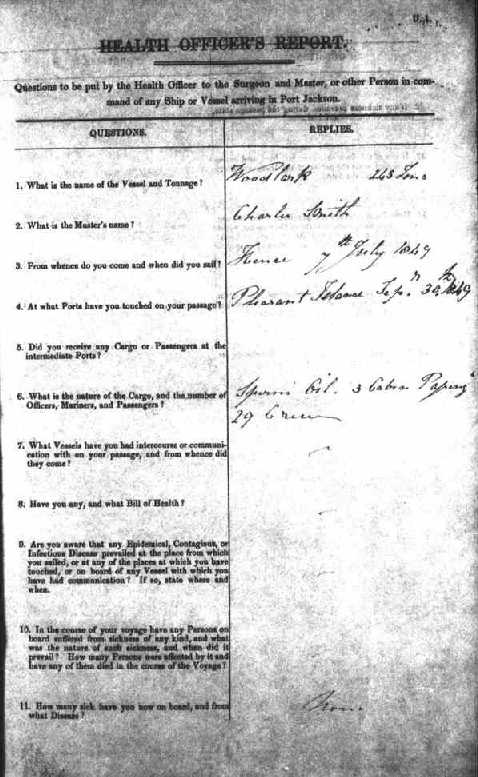 HEALTH OFFICER'S REPORT.
Questions to be put by the Health Officer to the Surgeon and Master, or other Person in com-
mand of any Ship or Vessel arriving in Port Jackson.
QUESTIONS.
REPLIES.
1. What is the name of the Vessel and Tonnage?
Woodlark 245 Tons
2. What is the Master's name?
Charles Smith
3. From whence do you come and when did you sail?
Hence 7th July 1849
4. At what Ports have you touched on your passage?
Pleasant Island Sep. 30th 1849
5. Did you receive any Cargo or Passengers at the
intermediate Ports?
6. What is the nature of the Cargo, and the number of
Officers, Mariners, and Passengers?
Sperm Oil. 3 Cabin Passengrs
29 Crew
7. What Vessels have you had intercourse or communi-
cation with on your passage, and from whence did
they come?
8. Have you any, and what Bill of Health?
9. Are you aware that any Epidemical, Contagious, or
Infectious Disease prevailed at the place from which
you sailed, or at any of the places at which you have
touched, or on board of any Vessel with which you
have had communication? If so, state where and
when.
10. In the course of your voyage have any Persons on
board suffered from sickness of any kind, and what
was the nature of such sickness, and when did it
prevail? How many Persons were affected by it and
have any of them died in the course of the Voyage?
11. How many sick have you now on board, and from
what Disease?
None